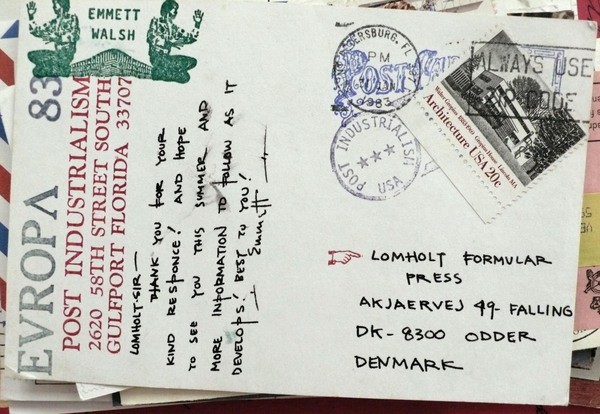 EMMETT
WALSH
EVROPA 83
POST INDUSTRIALISM
2620 58TH STREET SOUTH
GULFPORT FLORIDA 33707
LOMHOLT-SIR—
THANK YOU FOR YOUR
KIND RESPONCE! AND HOPE
TO SEE YOU THIS SUMMER AND
MORE INFORMATION TO FOLLOW AS IT
DEVELOPS! BEST TO YOU!
Emmett
PETERSBURG, FL
PM
1983
POST CARD
ALWAYS USE
ZIP CODE
POST INDUSTRIALISM
USA
Walter Gropius 1883-1969 Gropius House Lincoln, MA
Architecture USA 20c
LOMHOLT FORMULAR
PRESS
AKJAERVEJ 49- FALLING
DK- 8300 ODDER
DENMARK